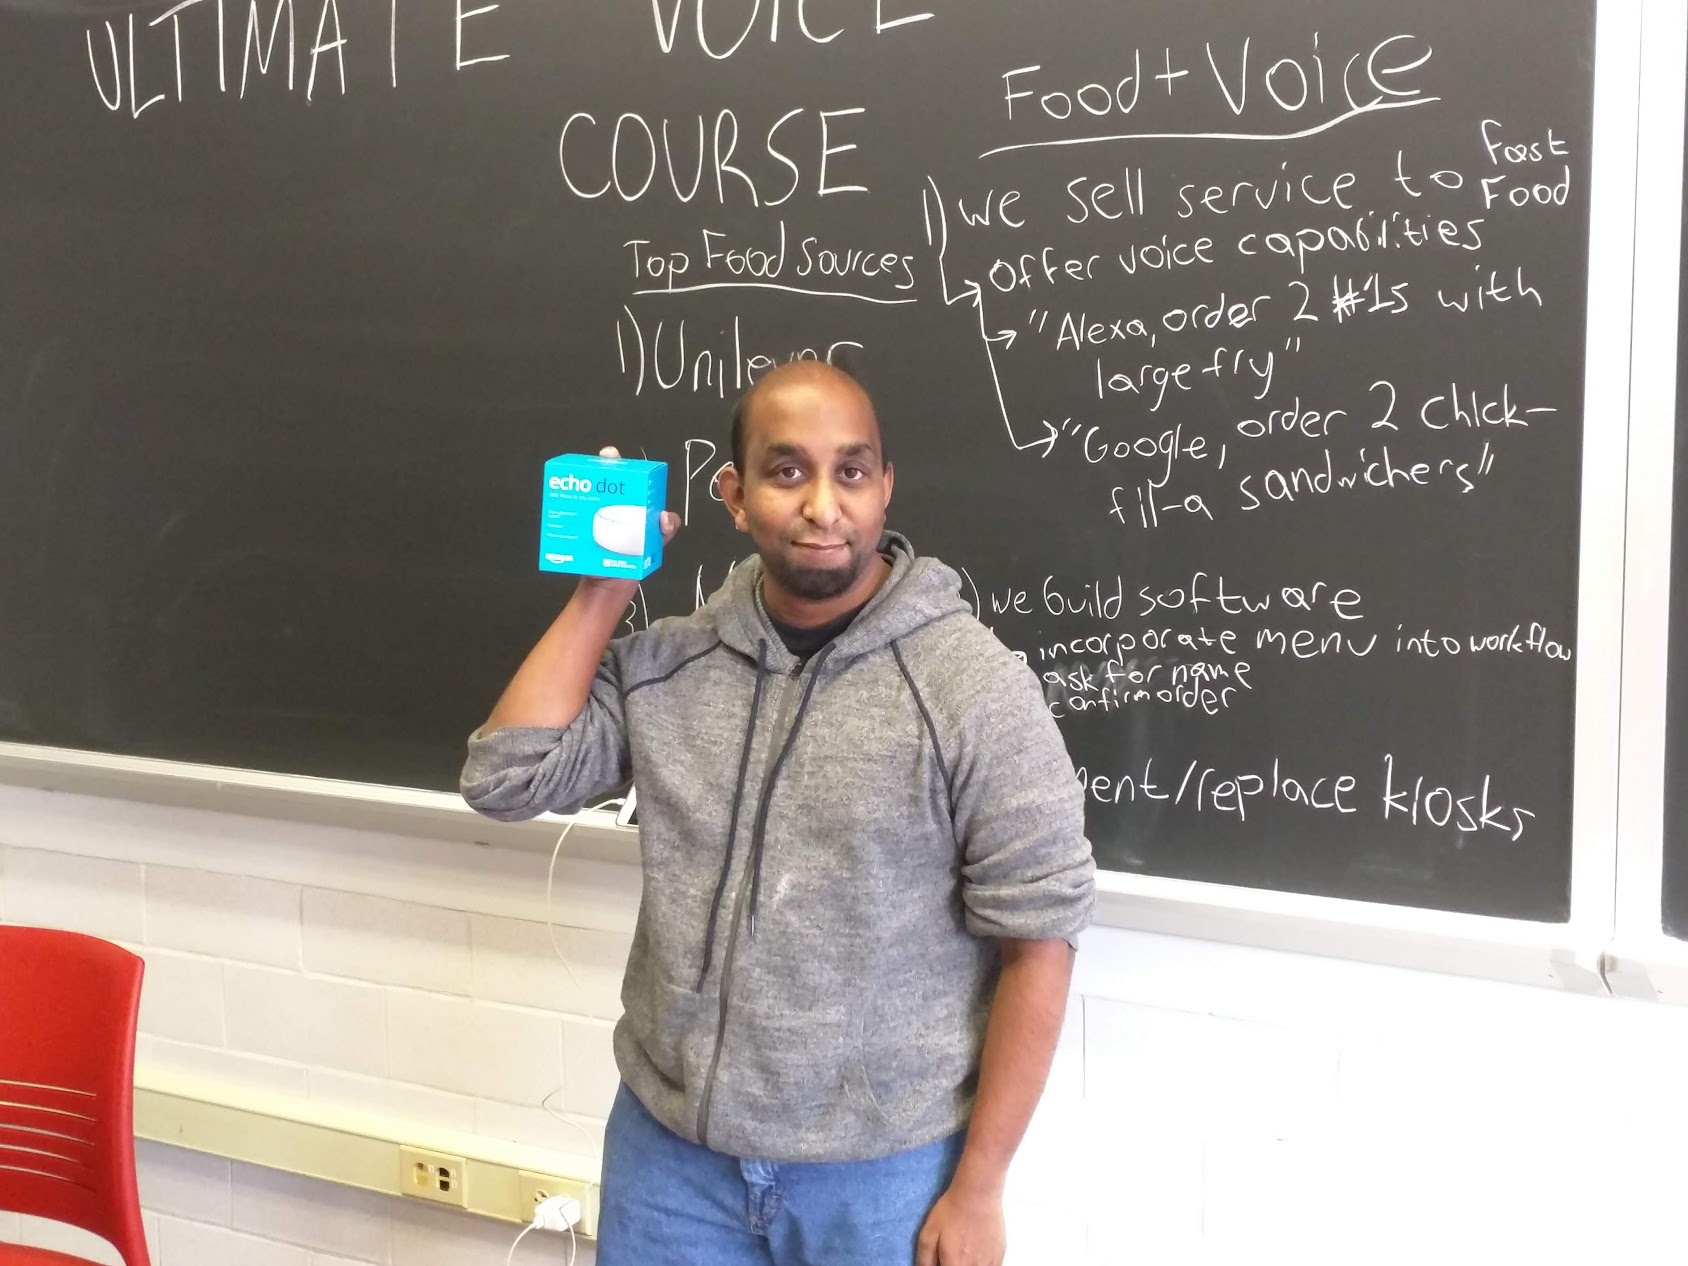 ULTIMATE VOICE
COURSE
Top Food Sources
1) Unilever
3)
Food + Voice
1) we sell service to Fast
Food
offer voice capabilities
"Alexa, order 2 #1s with
large fry"
"Google, order 2 chick-
fil-a sandwichers"
) we build software
incorporate menu into workflow
ask for name
confirm order
ment/replace kiosks
echo dot
amazon